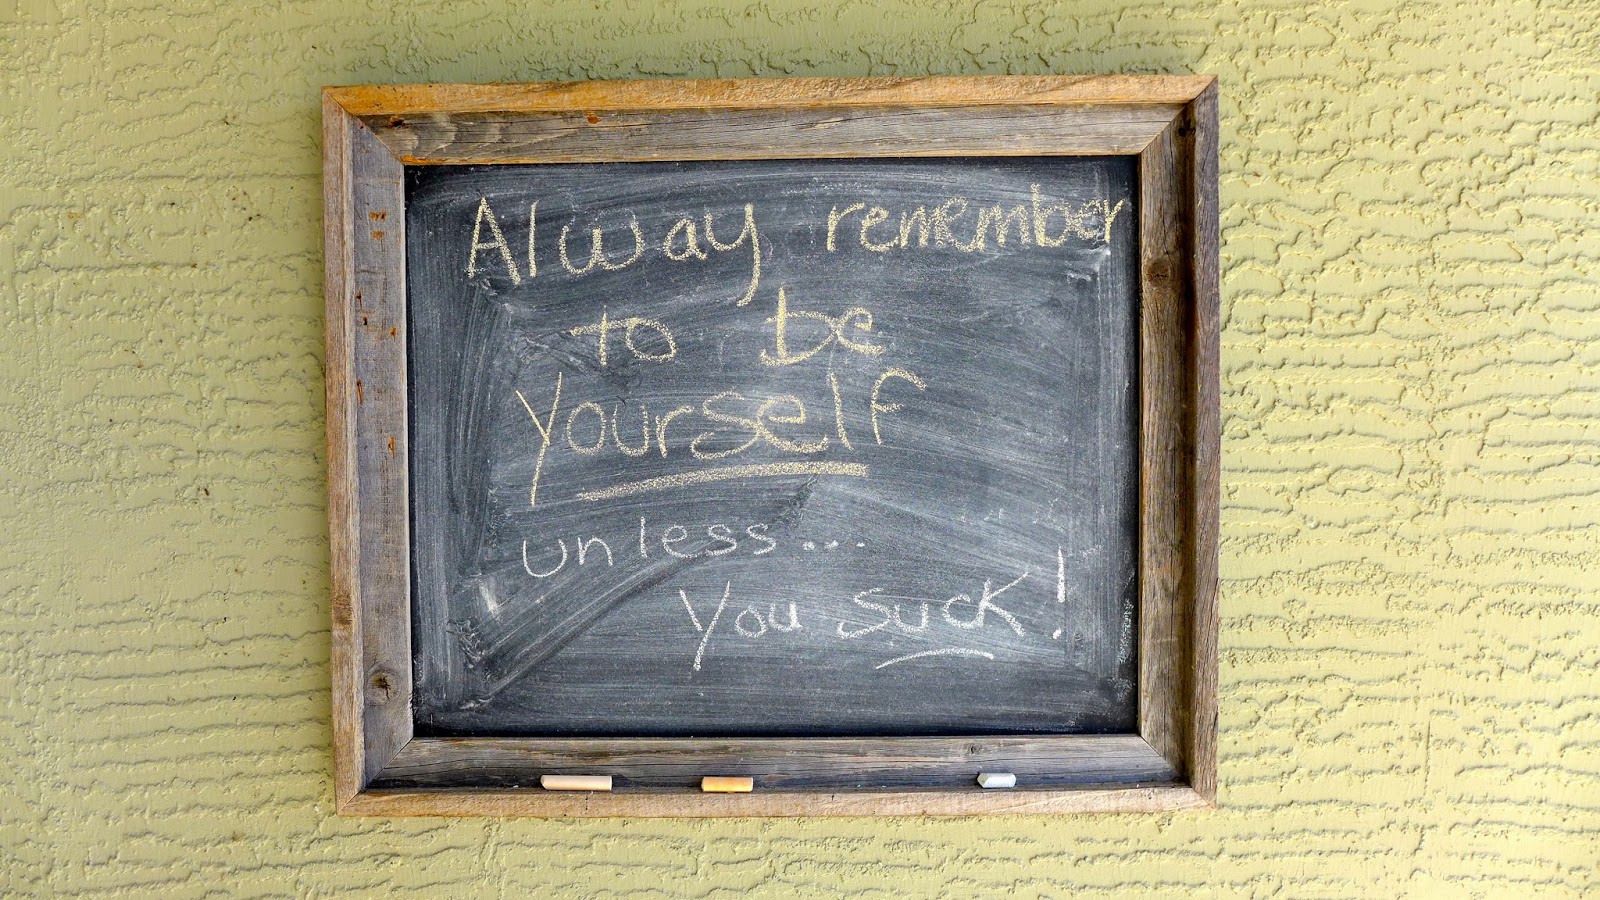 Alway remember
to be
yourself
unless...
you suck!